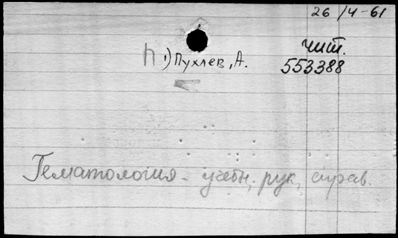 26/4-61
чит.
П 1) Пухлев, А.
553388
Гематология - учебн. рук, справ.